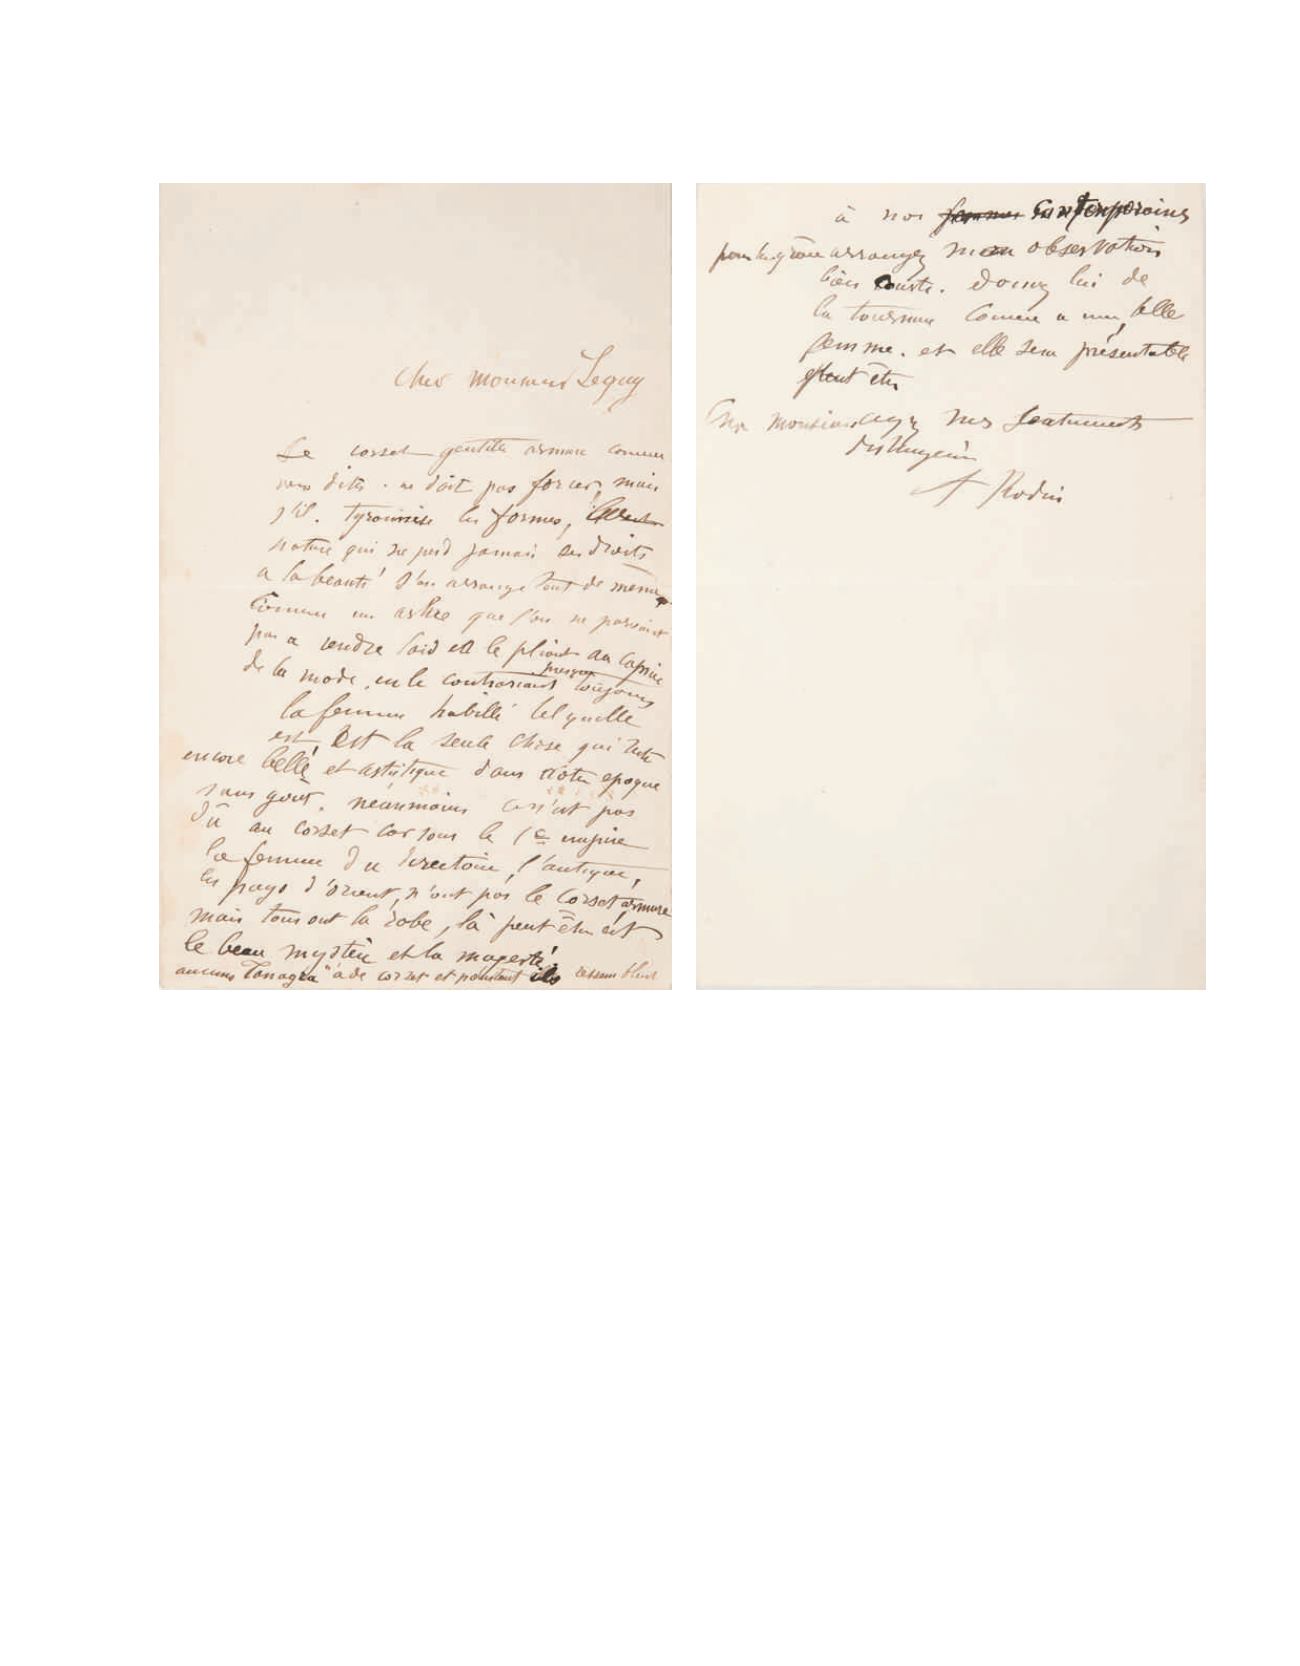 cher monsieur Leguy
Le corset gentille armure comme
vous dites. ne doit pas forcer, mais
s'il. tyrannise les formes,
nature qui ne perd jamais ses droits
a la beauté s'en arrange tout de même.
Comme un arbre que l'on ne parvient
pas a rendre laid en le pliant au caprice
de la mode, en le contrariant presque toujours
la femme habillé tel quelle
est, est la seule chose qui reste
encore belle et artistique dans notre epoque
sans goût. néanmoins ce n'est pas
dû au corset car sous le 1e empire
la femme du directoire, l'antique,
les pays d'orient, n'ont pas le corset, armure
mais tous ont la robe, là peut être est
le beau mystère et la magesté.
aucunes Tanagra à de corset et pourtant ils ressemblent
à nos femmes contemporaines
arrangez mon observation
bien courte. donnez lui de
la tournure comme a une belle
femme. et elle sera présentable
peut être
Cher Monsieur ayez mes sentiments
distingués
A Rodin